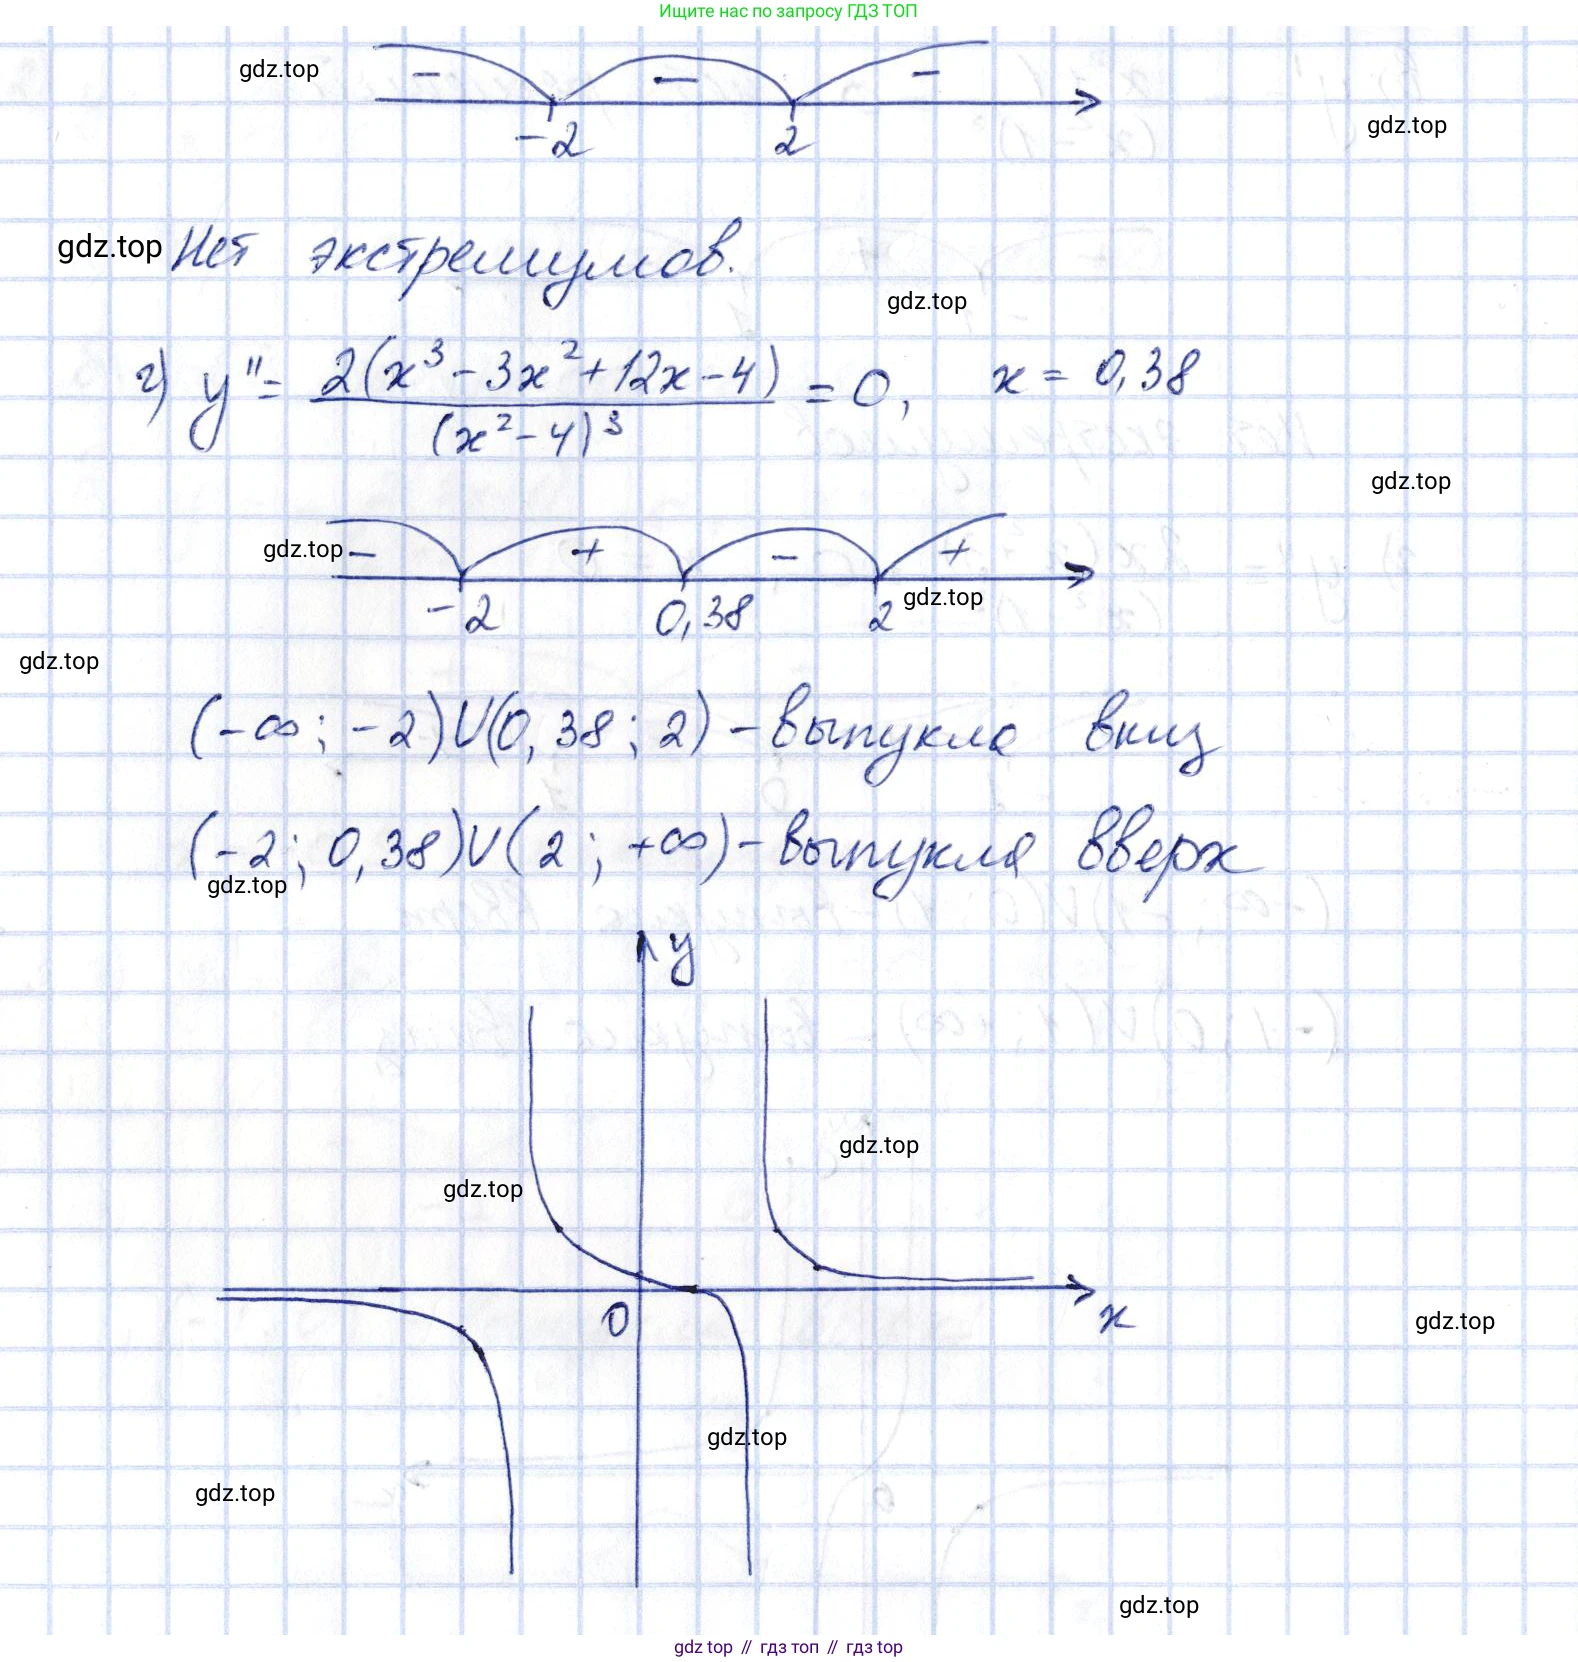 Ищите нас по запросу ГДЗ ТОП
gdz.top
− − −
gdz.top
−2 2
gdz.top Нет экстремумов.
gdz.top
г) y'' = 2(x³ − 3x² + 12x − 4) / (x² − 4)³ = 0, x = 0,38
gdz.top
gdz.top − + − +
−2 0,38 2 gdz.top
gdz.top
(−∞; −2)∪(0,38; 2) − выпукла вниз
(−2; 0,38)∪(2; +∞) − выпукла вверх
gdz.top
y
gdz.top
gdz.top
0 x
gdz.top
gdz.top
gdz.top
gdz.top
gdz top // гдз топ // гдз top